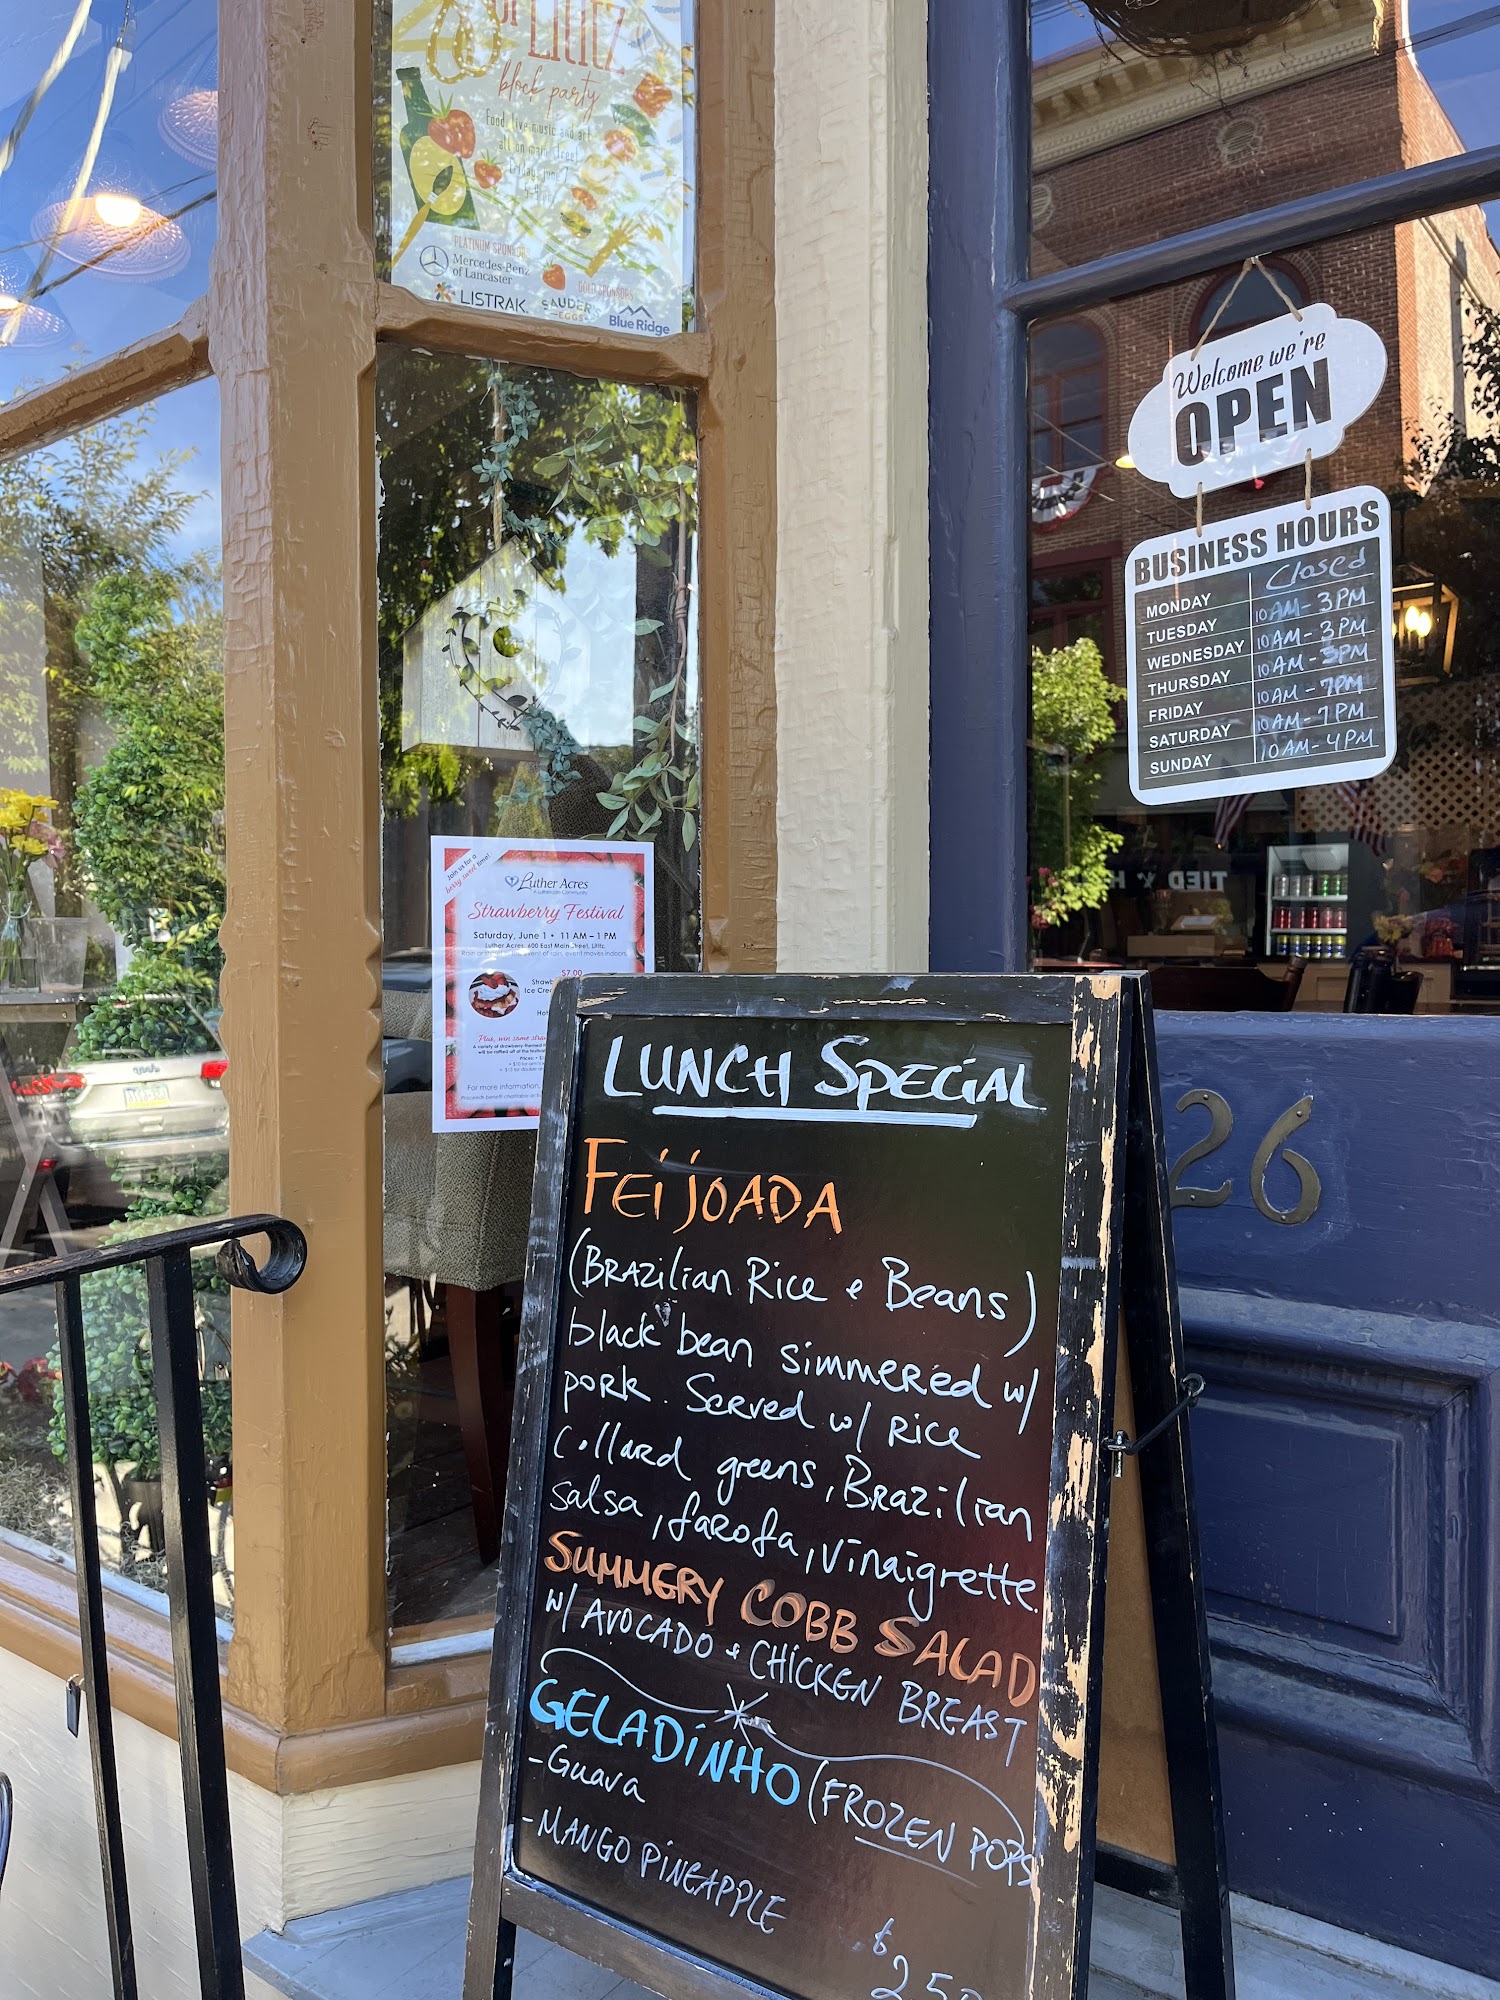 of
Lititz
block party
Food, live music and art
all on main street
Friday, June 7
PLATINUM SPONSORS
Mercedes-Benz
of Lancaster
LISTRAK
GOLD SPONSORS
SAUDER
EGGS
Blue Ridge
Welcome we're
OPEN
BUSINESS HOURS
MONDAY Closed
TUESDAY 10AM - 3PM
WEDNESDAY 10AM - 3PM
THURSDAY 10AM - 3PM
FRIDAY 10AM - 7PM
SATURDAY 10AM - 7PM
SUNDAY 10AM - 4PM
TIED
Join us for a
berry sweet time!
Luther Acres
Strawberry Festival
Saturday, June 1 • 11 AM – 1 PM
Luther Acres, 600 East Main Street, Lititz
Rain or event of rain, event moves indoors.
$7.00
Ice
Plus, win some
A variety of strawberry-themed
will be raffled off at the
Prices:
For more information,
Proceeds benefit charitable
26
LUNCH SPECiAL
FEijOADA
(BRAZilian Rice & Beans)
black bean simmeRed w/
poRk. SeRved w/ Rice
collaRd greens, BRazilian
salsa, faRofa, vinaigrette.
SUMMERY COBB SALAD
W/ AVOCADO & CHiCKEN BREAST
GELADiNHO (FROZEN POPS
- Guava
- MANGO PiNEAPPLE